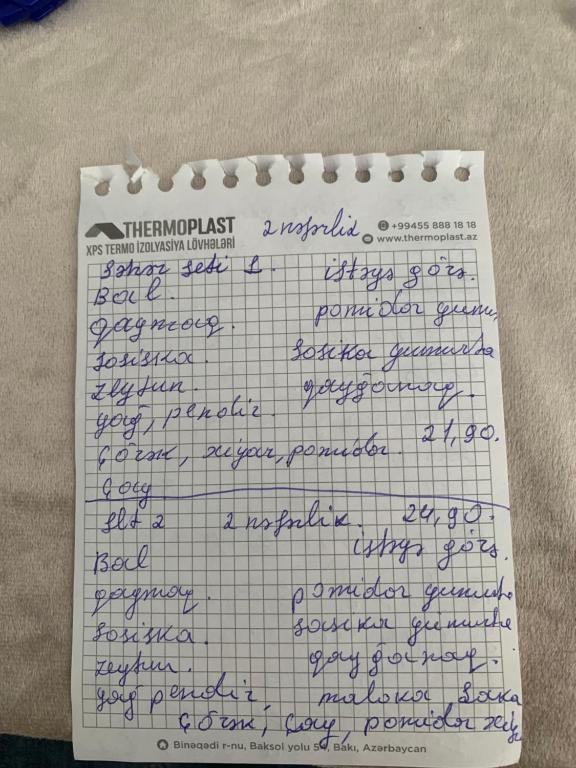 THERMOPLAST
XPS TERMO İZOLYASİYA LÖVHƏLƏRİ
2 nəfərlik
+99455 888 18 18
www.thermoplast.az
Səhər seti 1. istəyə görə.
Bal.
qaymaq. pomidor yumu
sosiska. sosika yumurta
zeytun. qayğanaq.
yağ, pendir.
çörək, xiyar, pomidor. 21,90.
Çay
set 2 2 nəfərlik. 24,90.
Bal istəyə görə.
qaymaq. pomidor yumurta
sosiska. sosika yumurta
zeytun. qayğanaq.
yağ pendir, maloka
çörək, çay, pomidor
Binəqədi r-nu, Baksol yolu Bakı, Azərbaycan